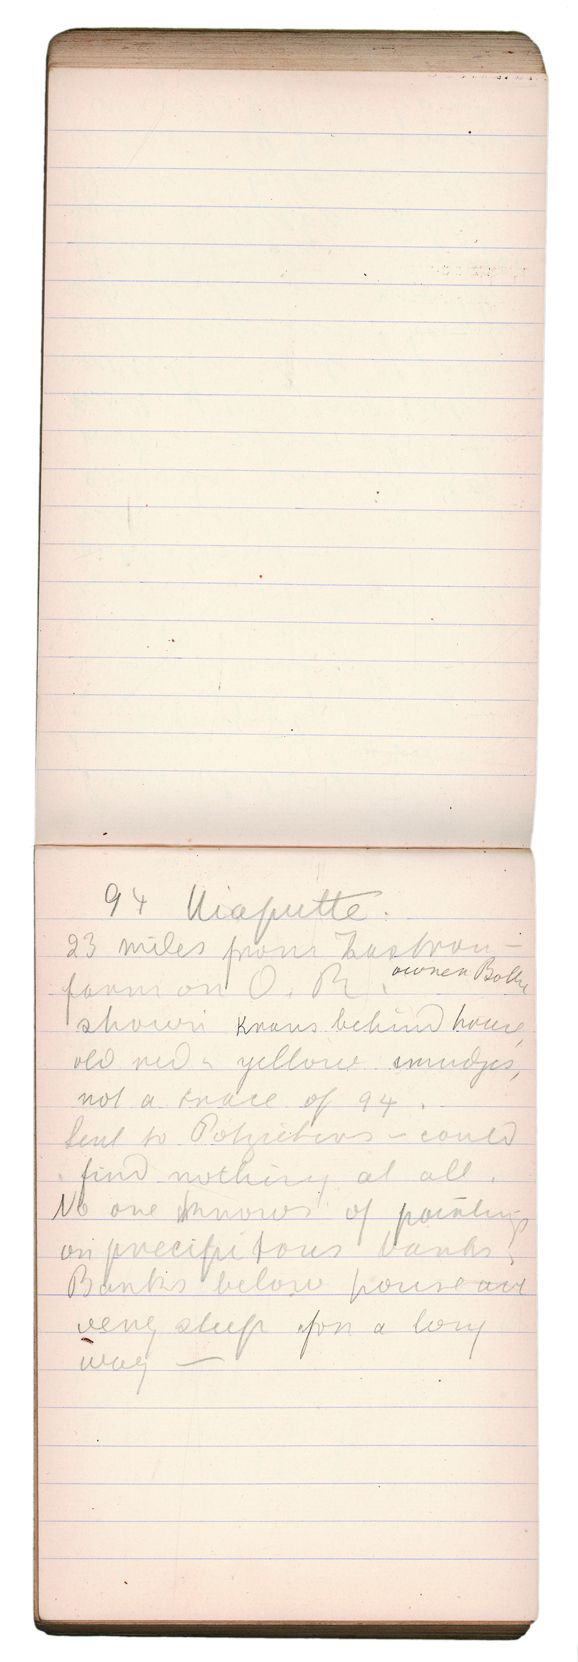 94 Uiaputte.
23 miles from Zastron –
farm on O. R. owner
shown Krans behind house,
old red & yellow smudges,
not a trace of 94.
Sent to – could
find nothing at all.
No one knows of paintings
on precipitous banks.
Banks below house are
very steep for a long
way —